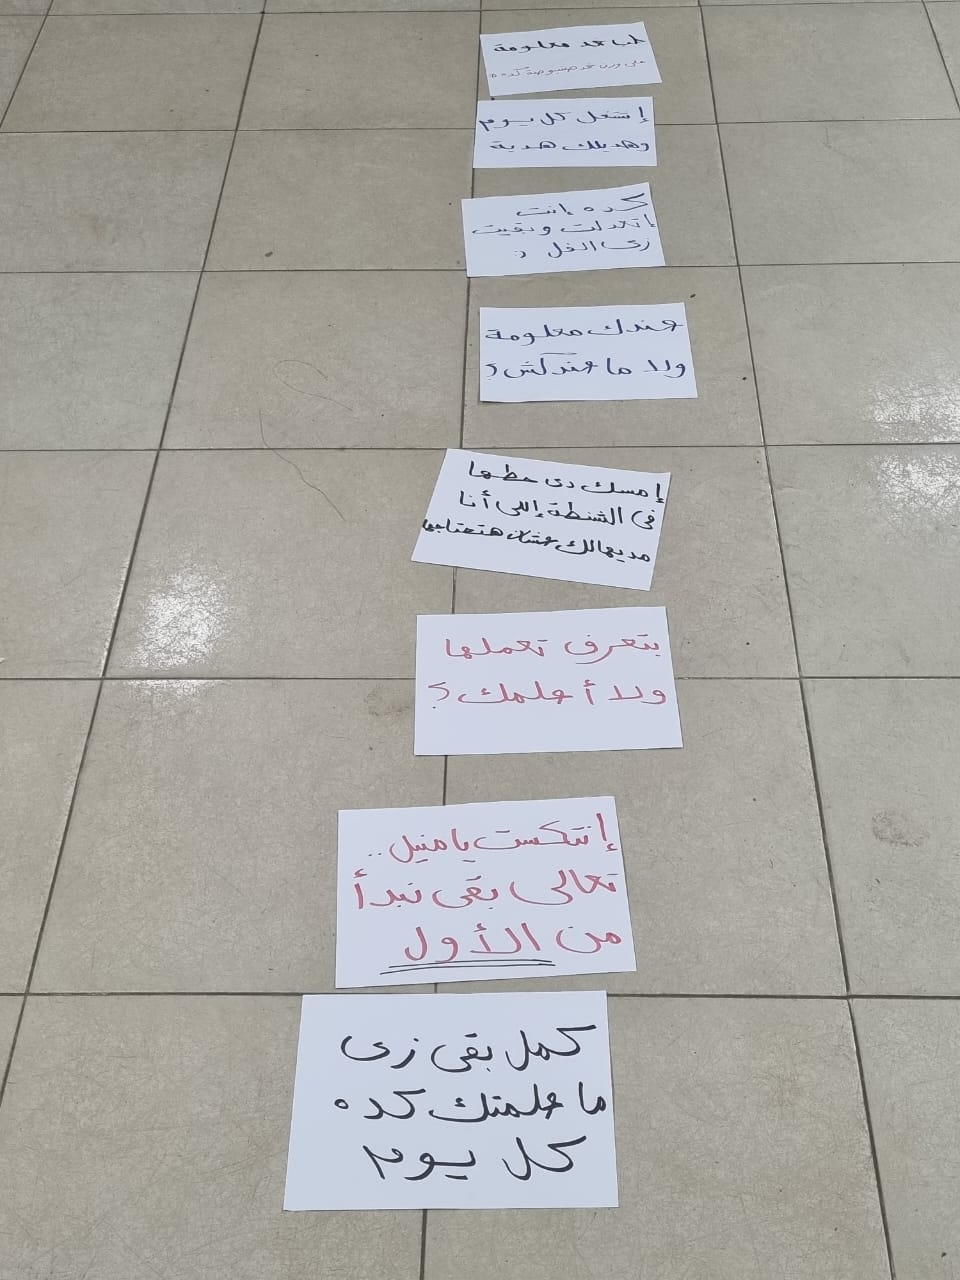 طب خد معلومة
على وزن خد صبوصة كده
إشتغل كل يوم
وهديلك هدية
كده إنت
إتعدلت وبقيت
زى الفل :
عندك معلومة
ولا ما عندكش؟
إمسك دى حطها
فى الشنطة إللى أنا
مديهالك عشان هتحتاجها
بتعرف تعملها
ولا أعلمك؟
إنتكست يا منيل..
تعالى بقى نبدأ
من الأول
كمل بقى زى
ما علمتك كده
كل يوم